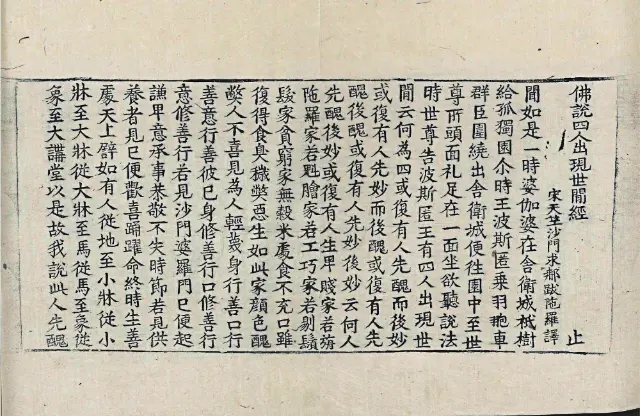 佛說四人出現世閒經 止
宋天竺沙門求那跋陁羅譯
聞如是一時婆伽婆在舍衛城祇樹
給孤獨園尒時王波斯匿乗羽葆車
群臣圍繞出舍衛城便往園中至世
尊所頭面礼足在一面坐欲聽說法
時世尊告波斯匿王有四人出現世
閒云何為四或復有人先醜而後妙
或復有人先妙而後醜或復有人先
醜後醜或復有人先妙後妙云何人
先醜後妙或復有人生卑賤家若旃
陁羅家若魁膾家若工巧家若剔鬚
髮家貧窮家無穀米處食不充口雖
復得食臭穢弊惡生如此家顏色醜
弊人不喜見為人輕蔑身行善口行
善意行善彼已身修善行口修善行
意修善行若見沙門婆羅門已便起
謙卑意承事恭敬不失時節若見供
養者見已便歡喜踊躍命終時生善
處天上譬如有人從地至小牀從小
牀至大牀從大牀至馬從馬至象從
象至大講堂以是故我說此人先醜